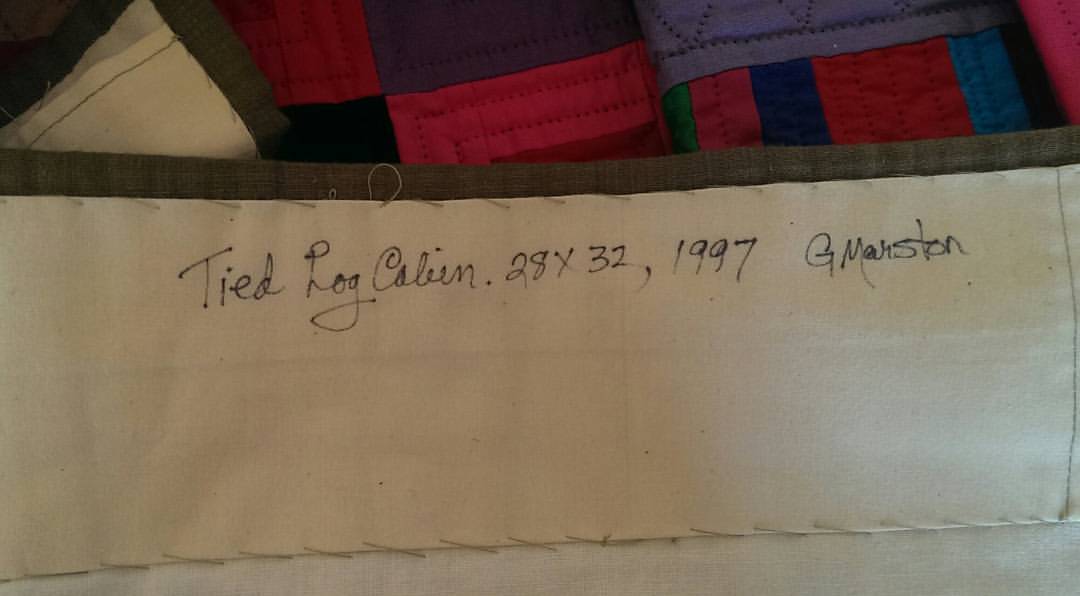 Tied Log Cabin. 28X32, 1997 GMarston